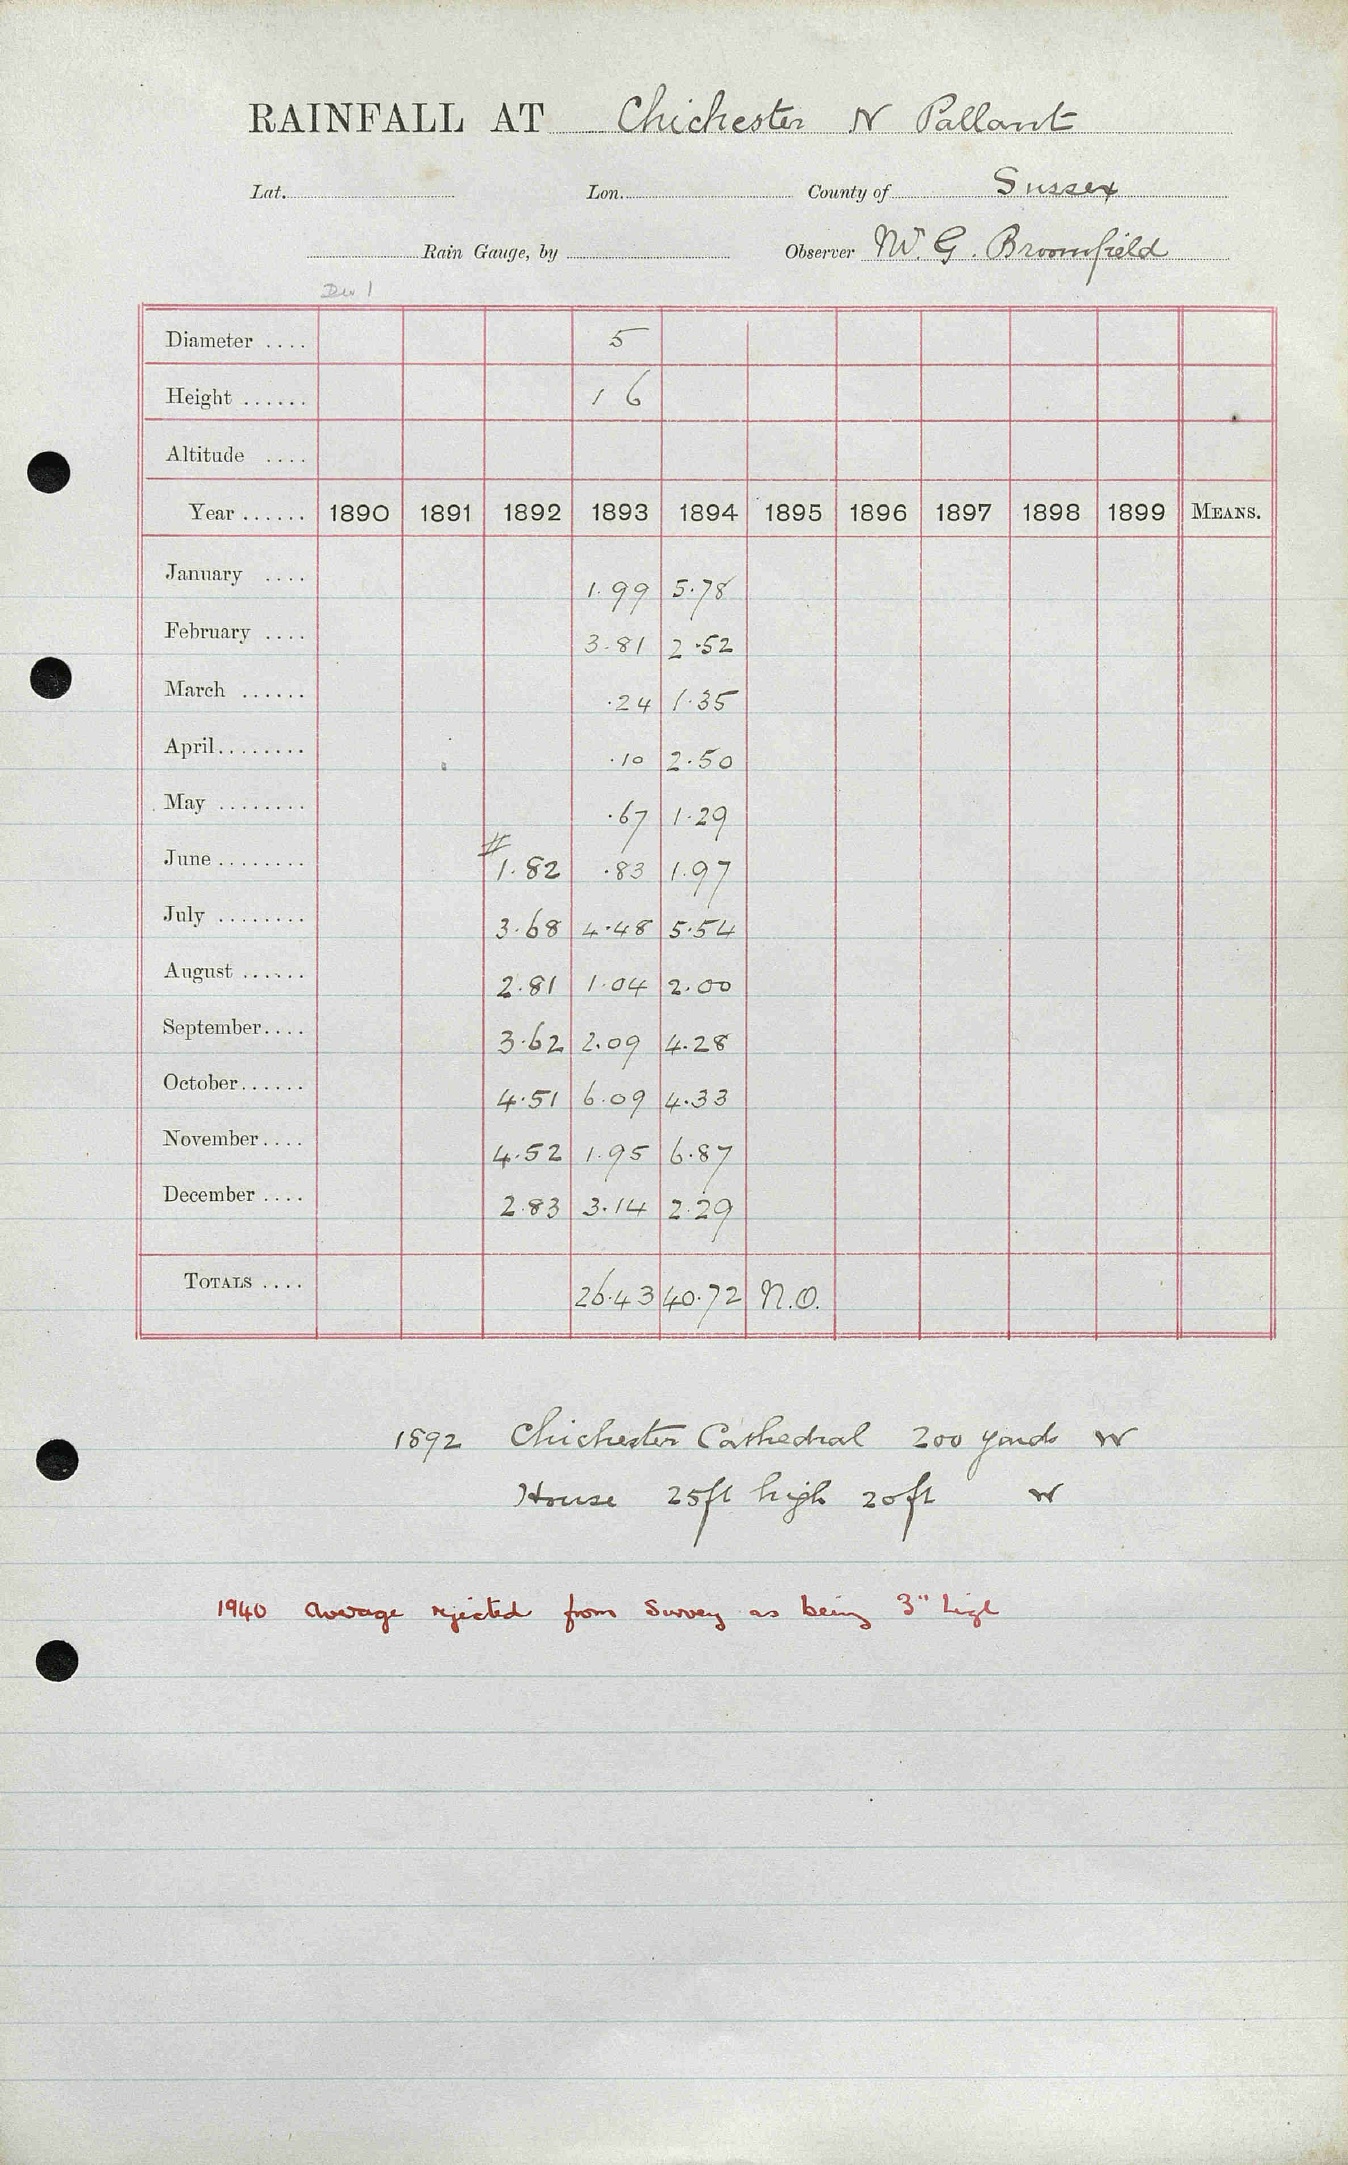 RAINFALL AT Chichester N Pallant
Lat. Lon. County of Sussex
Rain Gauge, by Observer W. G. Broomfield
Diameter .... 5
Height ...... 1 6
Altitude ....
Year ...... 1890 1891 1892 1893 1894 1895 1896 1897 1898 1899 MEANS.
January .... 1.99 5.78
February .... 3.81 2.52
March ...... .24 1.35
April........ .10 2.50
May ........ .67 1.29
June ........ # 1.82 .83 1.97
July ........ 3.68 4.48 5.54
August ...... 2.81 1.04 2.00
September.... 3.62 2.09 4.28
October...... 4.51 6.09 4.33
November.... 4.52 1.95 6.87
December .... 2.83 3.14 2.29
TOTALS .... 26.43 40.72 N.O.
1892 Chichester Cathedral 200 yards W
House 25ft high 20ft W
1940 Average rejected from Survey as being 3" high